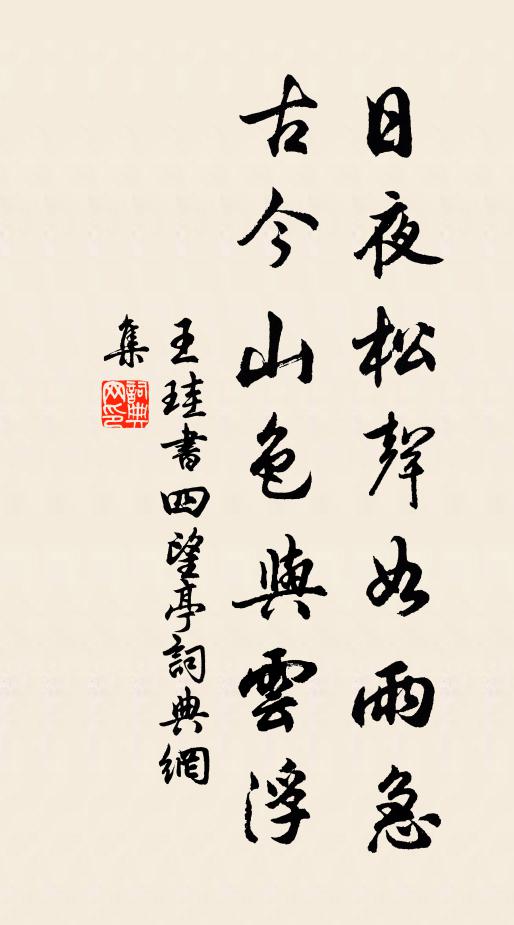 日夜松聲如雨急
古今山色與雲浮
王珪書四望亭詞典網
集
詞典
网印